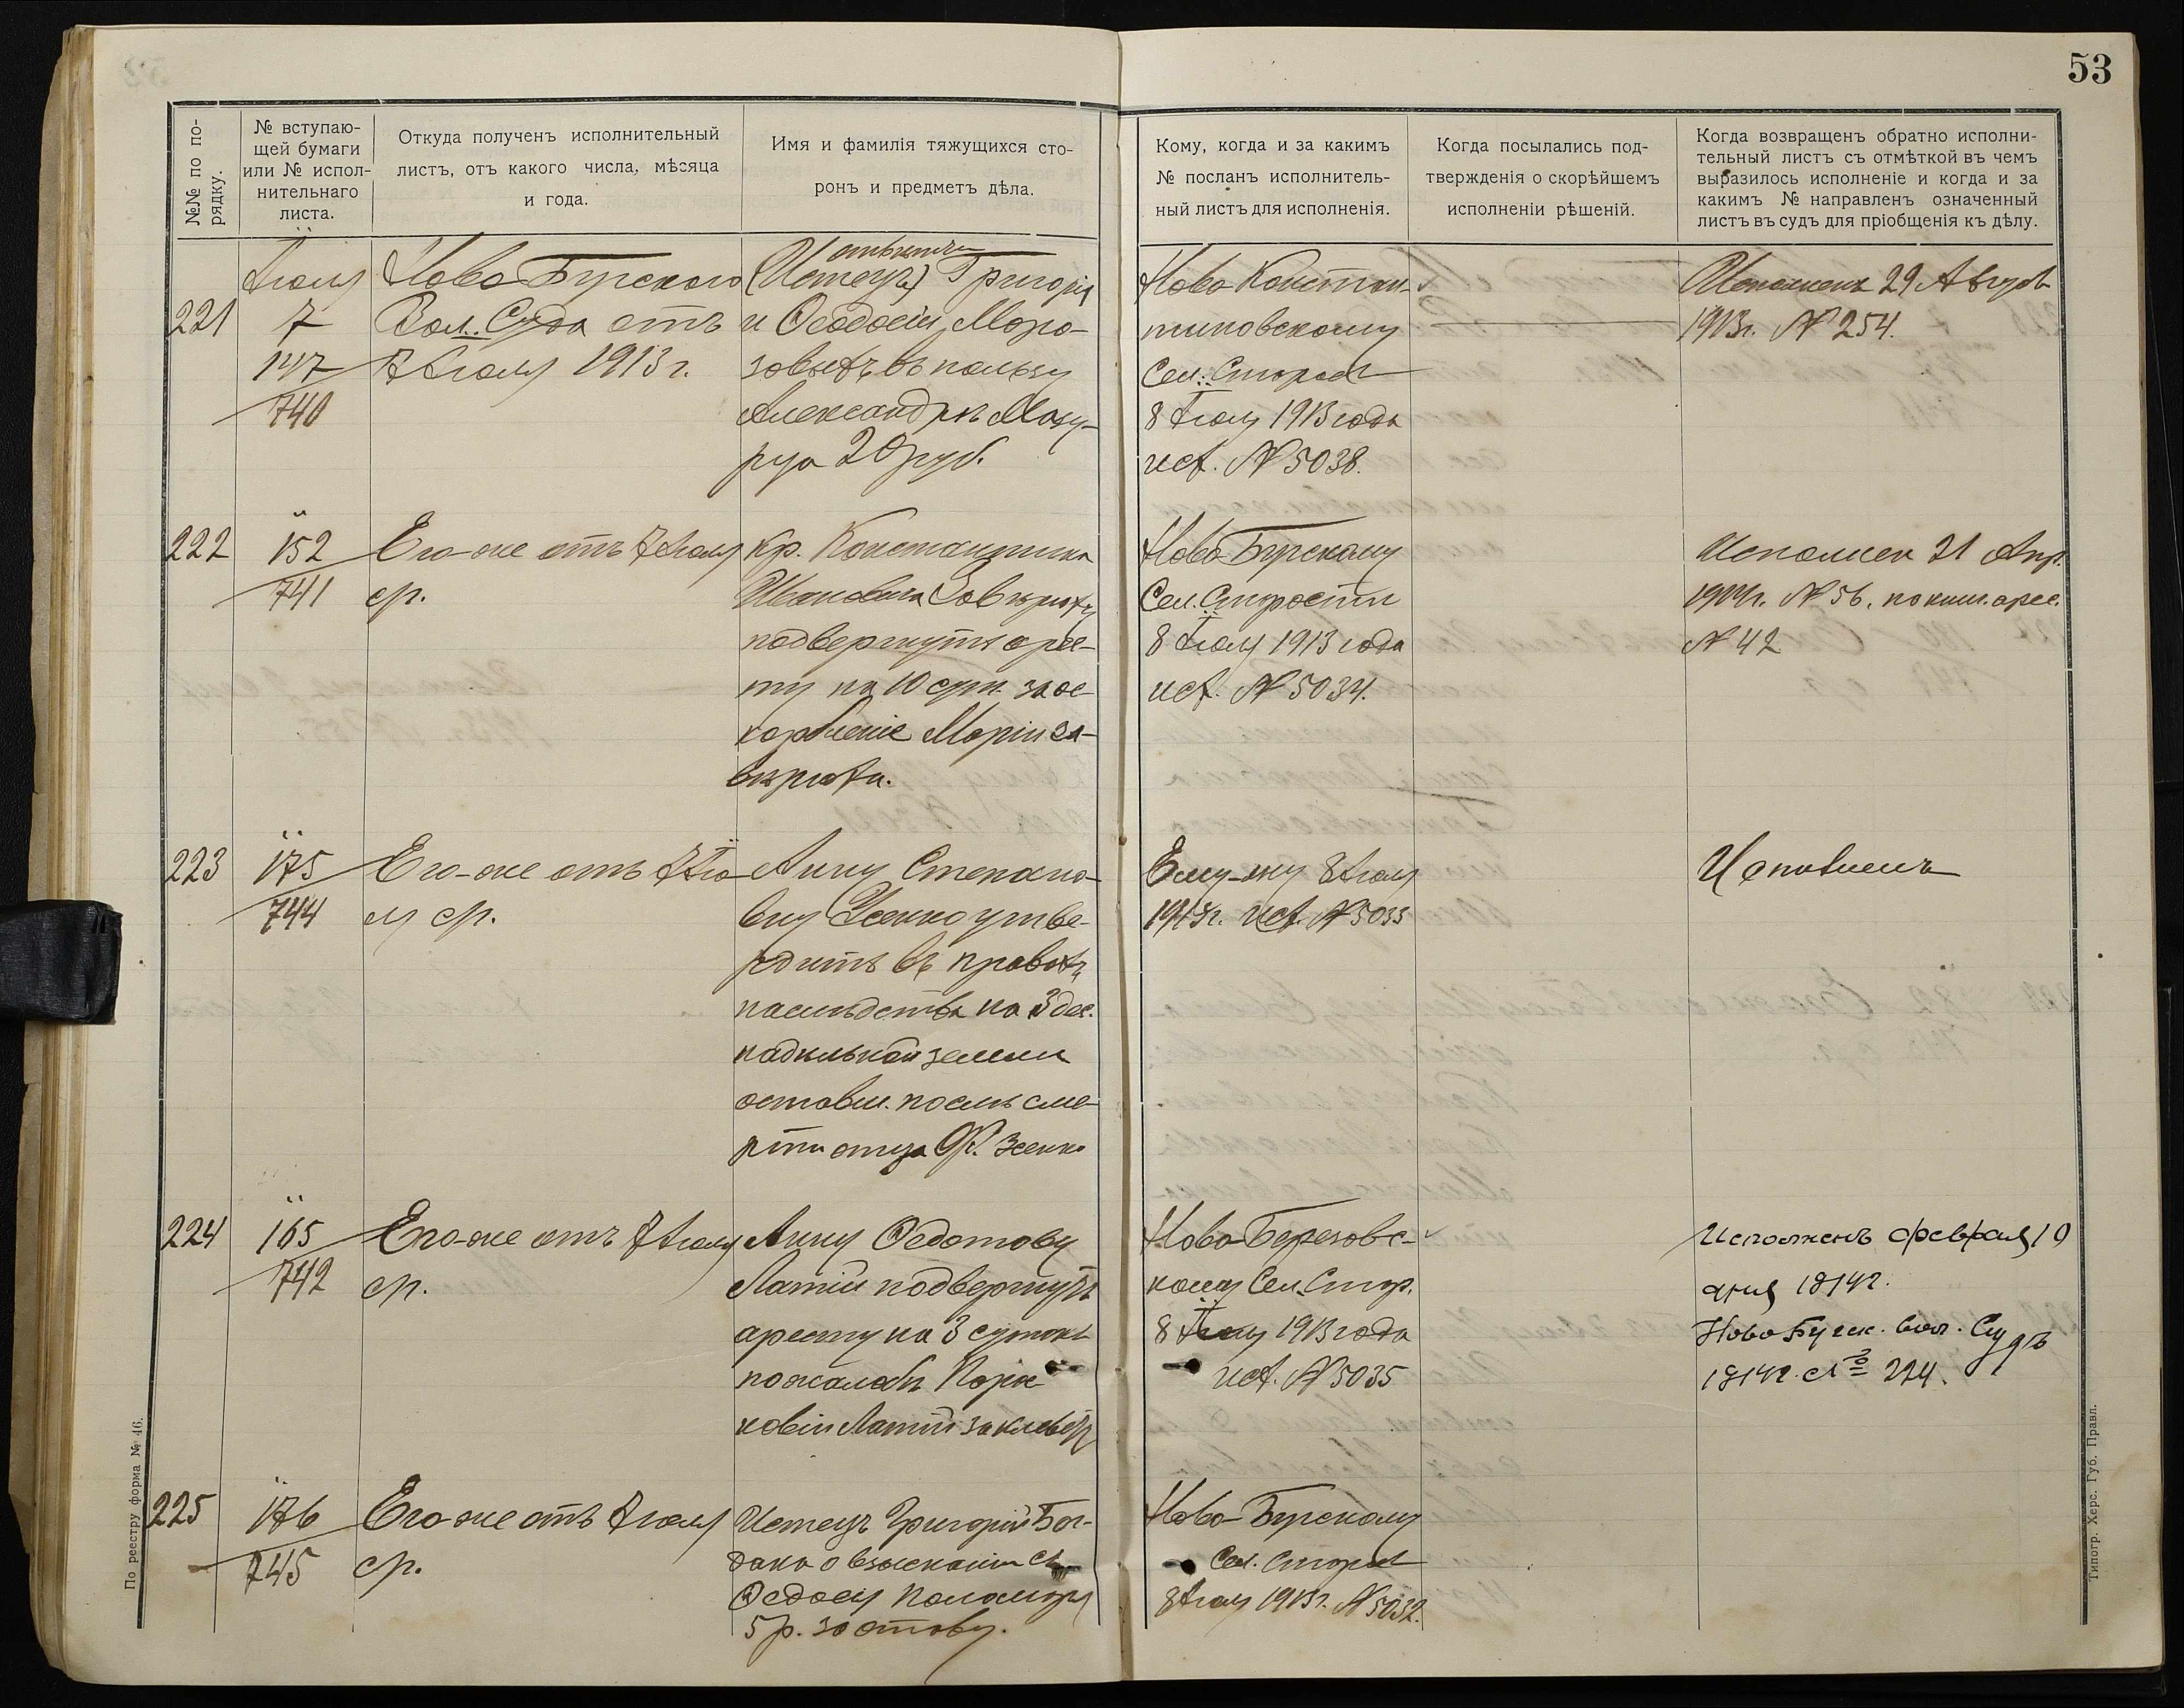 53
№№ по по-
рядку.
№ вступаю-
щей бумаги
или № испол-
нительнаго
листа.
Откуда полученъ исполнительный
листъ, отъ какого числа, мѣсяца
и года.
Имя и фамилія тяжущихся сто-
ронъ и предметъ дѣла.
Кому, когда и за какимъ
№ посланъ исполнитель-
ный листъ для исполненія.
Когда посылались под-
твержденія о скорѣйшемъ
исполненіи рѣшеній.
Когда возвращенъ обратно исполни-
тельный листъ съ отмѣткой въ чемъ
выразилось исполненіе и когда и за
какимъ № направленъ означенный
листъ въ судъ для пріобщенія къ дѣлу.
221
Іюля
7
147
740
Ново-Бугского
Вол. Суда отъ
7 Іюля 1913 г.
(Истецъ) Григорія
и Ѳеодосіи Моро-
зовыхъ въ пользу
Александръ Мазу-
руа 20 руб.
Ново-Констан-
тиновскому
Сел. Старост
8 Іюля 1913 года
исх. № 5038.
Исполненъ 29 Август
1913 г. № 254.
222
152
741
Его-же отъ 7 Іюля
ср.
Кр. Константина
Ивановича
подвергнуть арес-
ту на 10 сут. за ос-
корбленіе Маріи За-
вѣрюхи.
Ново-Бугскому
Сел. Старостѣ
8 Іюля 1913 года
исх. № 5034.
Исполнен 21 Апр.
1914 г. № 56. по книг. арес.
№ 42
223
175
744
Его-же отъ 7 Ію-
ля ср.
Анну Степано-
вну Усенко утве-
рдить въ правахъ
наслѣдства на 3 дес.
надѣльной земли
оставш. послѣ сме-
рти отца
Ему-же 8 Іюля
1913 г. исх. № 5033
Исполненъ
224
165
742
Его-же отъ 7 Іюля
ср.
Анну Ѳедотову
Латій подвергнуть
аресту на 3 сутокъ
по жалобѣ Порас-
ковіи Латій за клевету
Ново-Березовс-
кому Сел. Стар.
8 Іюля 1913 года
исх. № 5035
Исполненъ Февраля 10
дня 1914 г.
Ново Бугск. вол. Судъ
1914 г. № 224.
225
176
745
Его-же отъ 7 Іюля
ср.
Истецъ Григорій Бог-
дана о взысканіи съ
Ѳедося Паламаря
5 р. за отаву.
Ново-Бугскому
Сел. Старост
8 Іюля 1913 г. № 5032.
По реестру форма № 46.
Типогр. Херс. Губ. Правл.